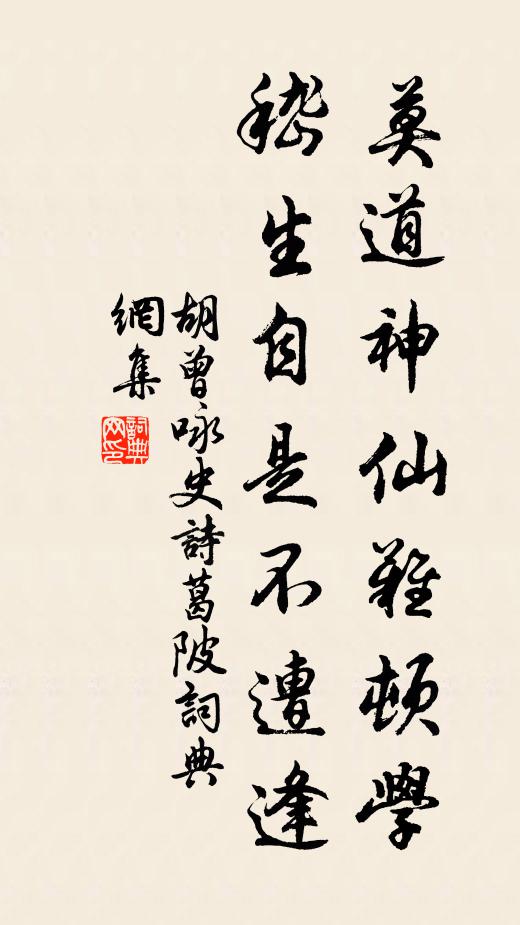 莫道神仙難頓學
嵇生自是不遭逢
胡曾咏史詩葛陂詞典
網集
詞典網印